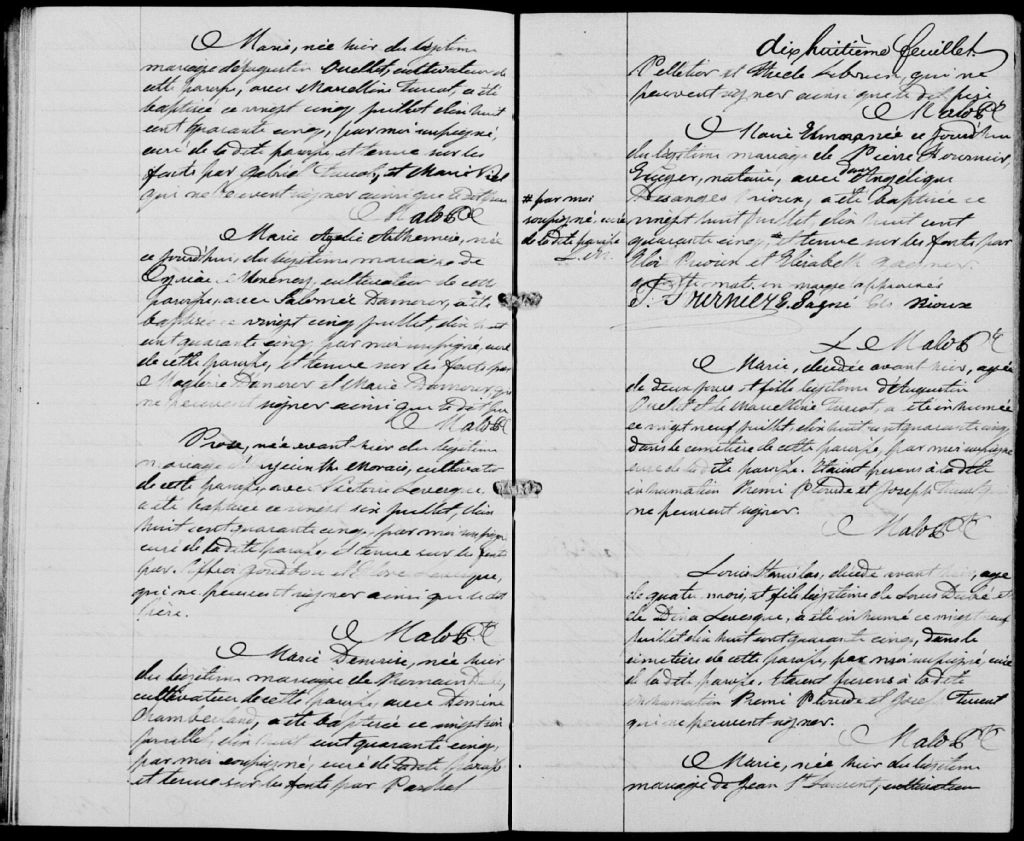 Marie, née hier du légitime
mariage d'Augustin Ouellet, cultivateur de
cette paroisse, avec Marcelline Turcot, a été
baptisée ce vingt cinq juillet dix huit
cent quarante cinq, par moi soussigné,
curé de la dite paroisse, et tenue sur les
fonts par Gabriel Turcot, et Marie
qui ne peuvent signer ainsi que le dit père
Malo Ptre
Marie Arthemise, née
ce jourd'hui, du légitime mariage de
cultivateur de cette
paroisse, avec Salomée Damour, a été
baptisée ce vingt cinq juillet, dix huit
cent quarante cinq par moi soussigné, curé
de cette paroisse, et tenue sur les fonts par
Magloire Damour et Marie Damour qui
ne peuvent signer ainsi que le dit père
Malo Ptre
Rose, née avant hier du légitime
mariage de Morais, cultivateur
de cette paroisse, avec Victoire Levesque,
a été baptisée ce vingt six juillet, dix
huit cent quarante cinq, par moi soussigné
curé de la dite paroisse et tenue sur les fonts
par et Levesque,
qui ne peuvent signer ainsi que le dit
père.
Malo Ptre
Marie Demise, née hier
du légitime mariage de Romain Dubé,
cultivateur de cette paroisse, avec Demise
Chamberland, a été baptisée ce vingt six
juillet, dix huit cent quarante cinq,
par moi soussigné, curé de la dite paroisse
et tenue sur les fonts par Paschal
dix huitième feuillet
Pelletier et Lebrun, qui ne
peuvent signer ainsi que le dit père
Malo Ptre
Marie née ce jourd'hui
du légitime mariage de Pierre Fournier,
Ecuyer, notaire, avec dame Angélique
Desanges Rioux, a été baptisée ce
vingt huit juillet dix huit cent
quarante cinq,# et tenue sur les fonts par
Eloi Rioux et Elisabeth Gagner.
en marge approuvés
# par moi
soussigné curé
de la dite paroisse
L. M.
P. Fournier E. Gagné Eloi Rioux
L. Malo Ptre
Marie, décédée avant hier, agée
de deux jours et fille légitime d'Augustin
Ouellet et de Marcelline Turcot, a été inhumée
ce vingt neuf juillet, dix huit cent quarante cinq,
dans le cimetière de cette paroisse, par moi soussigné
curé de la dite paroisse. Etaient présens à la dite
inhumation Remi Plourde et Joseph Turcot
ne peuvent signer.
Malo Ptre
Louis Stanislas, décédé avant hier, agé
de quatre mois, et fils légitime de Louis Dubé et
de Dina Levesque, a été inhumé ce vingt neuf
juillet dix huit cent quarante cinq, dans le
cimetière de cette paroisse, par moi soussigné, curé
de la dite paroisse. Etaient présens à la dite
inhumation Remi Plourde et Joseph Turcot
qui ne peuvent signer.
Malo Ptre
Marie, née hier du légitime
mariage de Jean St Laurent, cultivateur